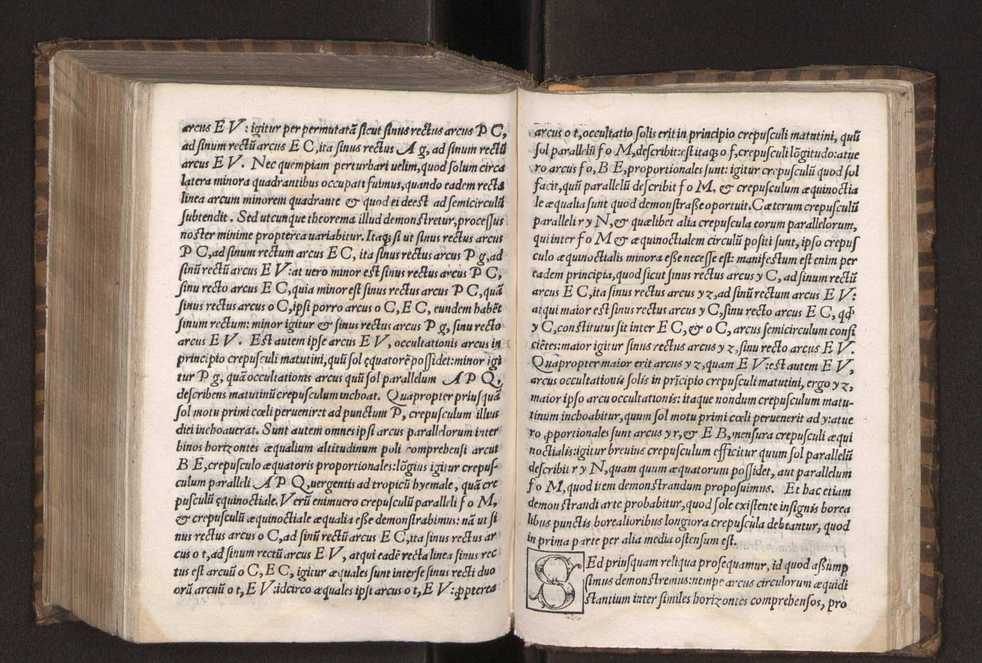 arcus E V : igitur per permutatã sicut sinus rectus arcus P C,
ad sinum rectũ arcus E C, ita sinus rectus A g, ad sinum rectũ
arcus E V. Nec quempiam perturbari uelim, quod solum circa
latera minora quadrantibus occupati fuimus, quando eadem recta
linea arcum minorem quadrante & quod ei deest ad semicirculũ
subtendit. Sed utcumque theorema illud demonstretur, processus
noster minime propterea uariabitur. Itaq; si ut sinus rectus arcus
P C, ad sinum rectum arcus E C, ita sinus rectus arcus P g, ad
sinũ rectũ arcus E V: at uero minor est sinus rectus arcus P C,
sinu recto arcus E C, quia minor est sinus rectus arcus P C, quã
sinus rectus arcus o C, ipsi porro arcus o C, E C, eundem habẽt
sinum rectum: minor igitur & sinus rectus arcus P g, sinu recto
arcus E V. Est autem ipse arcus E V, occultationis arcus in
principio crepusculi matutini, quũ sol ęquatorẽ possidet: minor igi
tur P g, quã occultationis arcus quũ sol parallelum A P Q,
describens matutinũ crepusculum inchoat. Quapropter prius quã
sol motu primi cœli peruenirit ad punctum P, crepusculum illius
diei inchoauerat. Sunt autem omnes ipsi arcus parallelorum inter
binos horizontes æqualium altitudinum poli comprehensi arcui
B E, crepusculo æquatoris proportionales: lõgius igitur crepus-
culum paralleli A P Q, uergentis ad tropicũ hyemale, quã cre
pusculũ ęquinoctiale. Verũ enimuero crepusculũ paralleli f o M,
& crepusculũ æquinoctiale æqualia esse demonstrabimus: nã ut si
nus rectus arcus o C, ad sinũ rectũ arcus E C, ita sinus rectus ar
cus o t, ad sinum rectũ arcus E V, atqui eadẽ recta linea sinus rec
tus est arcuũ o C, E C, igitur æquales sunt inter se sinus recti duo
orũ arcuũ o t, E V: idcirco æquales ipsi arcus o t, E V: ꝓpterea
arcus o t, occultatio solis erit in principio crepusculi matutini, quũ
sol parallelũ f o M, describit: est itaq; o f, crepusculi lõgitudo: at ue
ro arcus f o, B E, proportionales sunt: igitur crepusculũ quod sol
facit, quũ parallelũ describit f o M, & crepusculum æquinoctia
le æqualia sunt quod demonstrasse oportuit. Cæterum crepusculũ
paralleli r y N, & quælibet alia crepuscula eorum parallelorum,
qui inter f o M & æquinoctialem circulũ positi sunt, ipso crepus
culo æquinoctialis minora esse necesse est: manifestum est enim per
eadem principia, quod sicut sinus rectus arcus y C, ad sinum rectũ
arcus E C, ita sinus rectus arcus y z, ad sinũ rectum arcus E V:
atqui maior est sinus rectus arcus y C, sinu recto arcus E C, qđ
y C, constitutus sit inter E C, & o C, arcus semicirculum confi
ciẽtes: maior igitur sinus rectus arcus y z, sinu recto arcus E V.
Quapropter maior erit arcus y z, quam E V: est autem E V,
arcus occultationis solis in prĩcipio crepusculi matutini, ergo y z,
maior ipso arcu occultationis: itaque nondum crepusculum matu-
tinum inchoabitur, quum sol motu primi cœli peruenerit ad y: at ue
ro ꝓportionales sunt arcus y r, & E B, mensura crepusculi æqui
noctialis: igitur breuius crepusculum efficitur quum sol parallelũ
describit r y N, quam quum æquatorum possidet, aut parallelum
f o M, quod item demonstrandum proposuimus. Et hac etiam
demonstrandi arte probabitur, quod sole existente in signis borea
libus punctis borealioribus longiora crepuscula debantur, quod
in prima parte per alia media ostensum est.
SEd priusquam reliqua prosequamur, id quod assump
simus demonstremus: nempe arcus circulorum æquidi
stantium inter similes horizontes comprehensos, pro